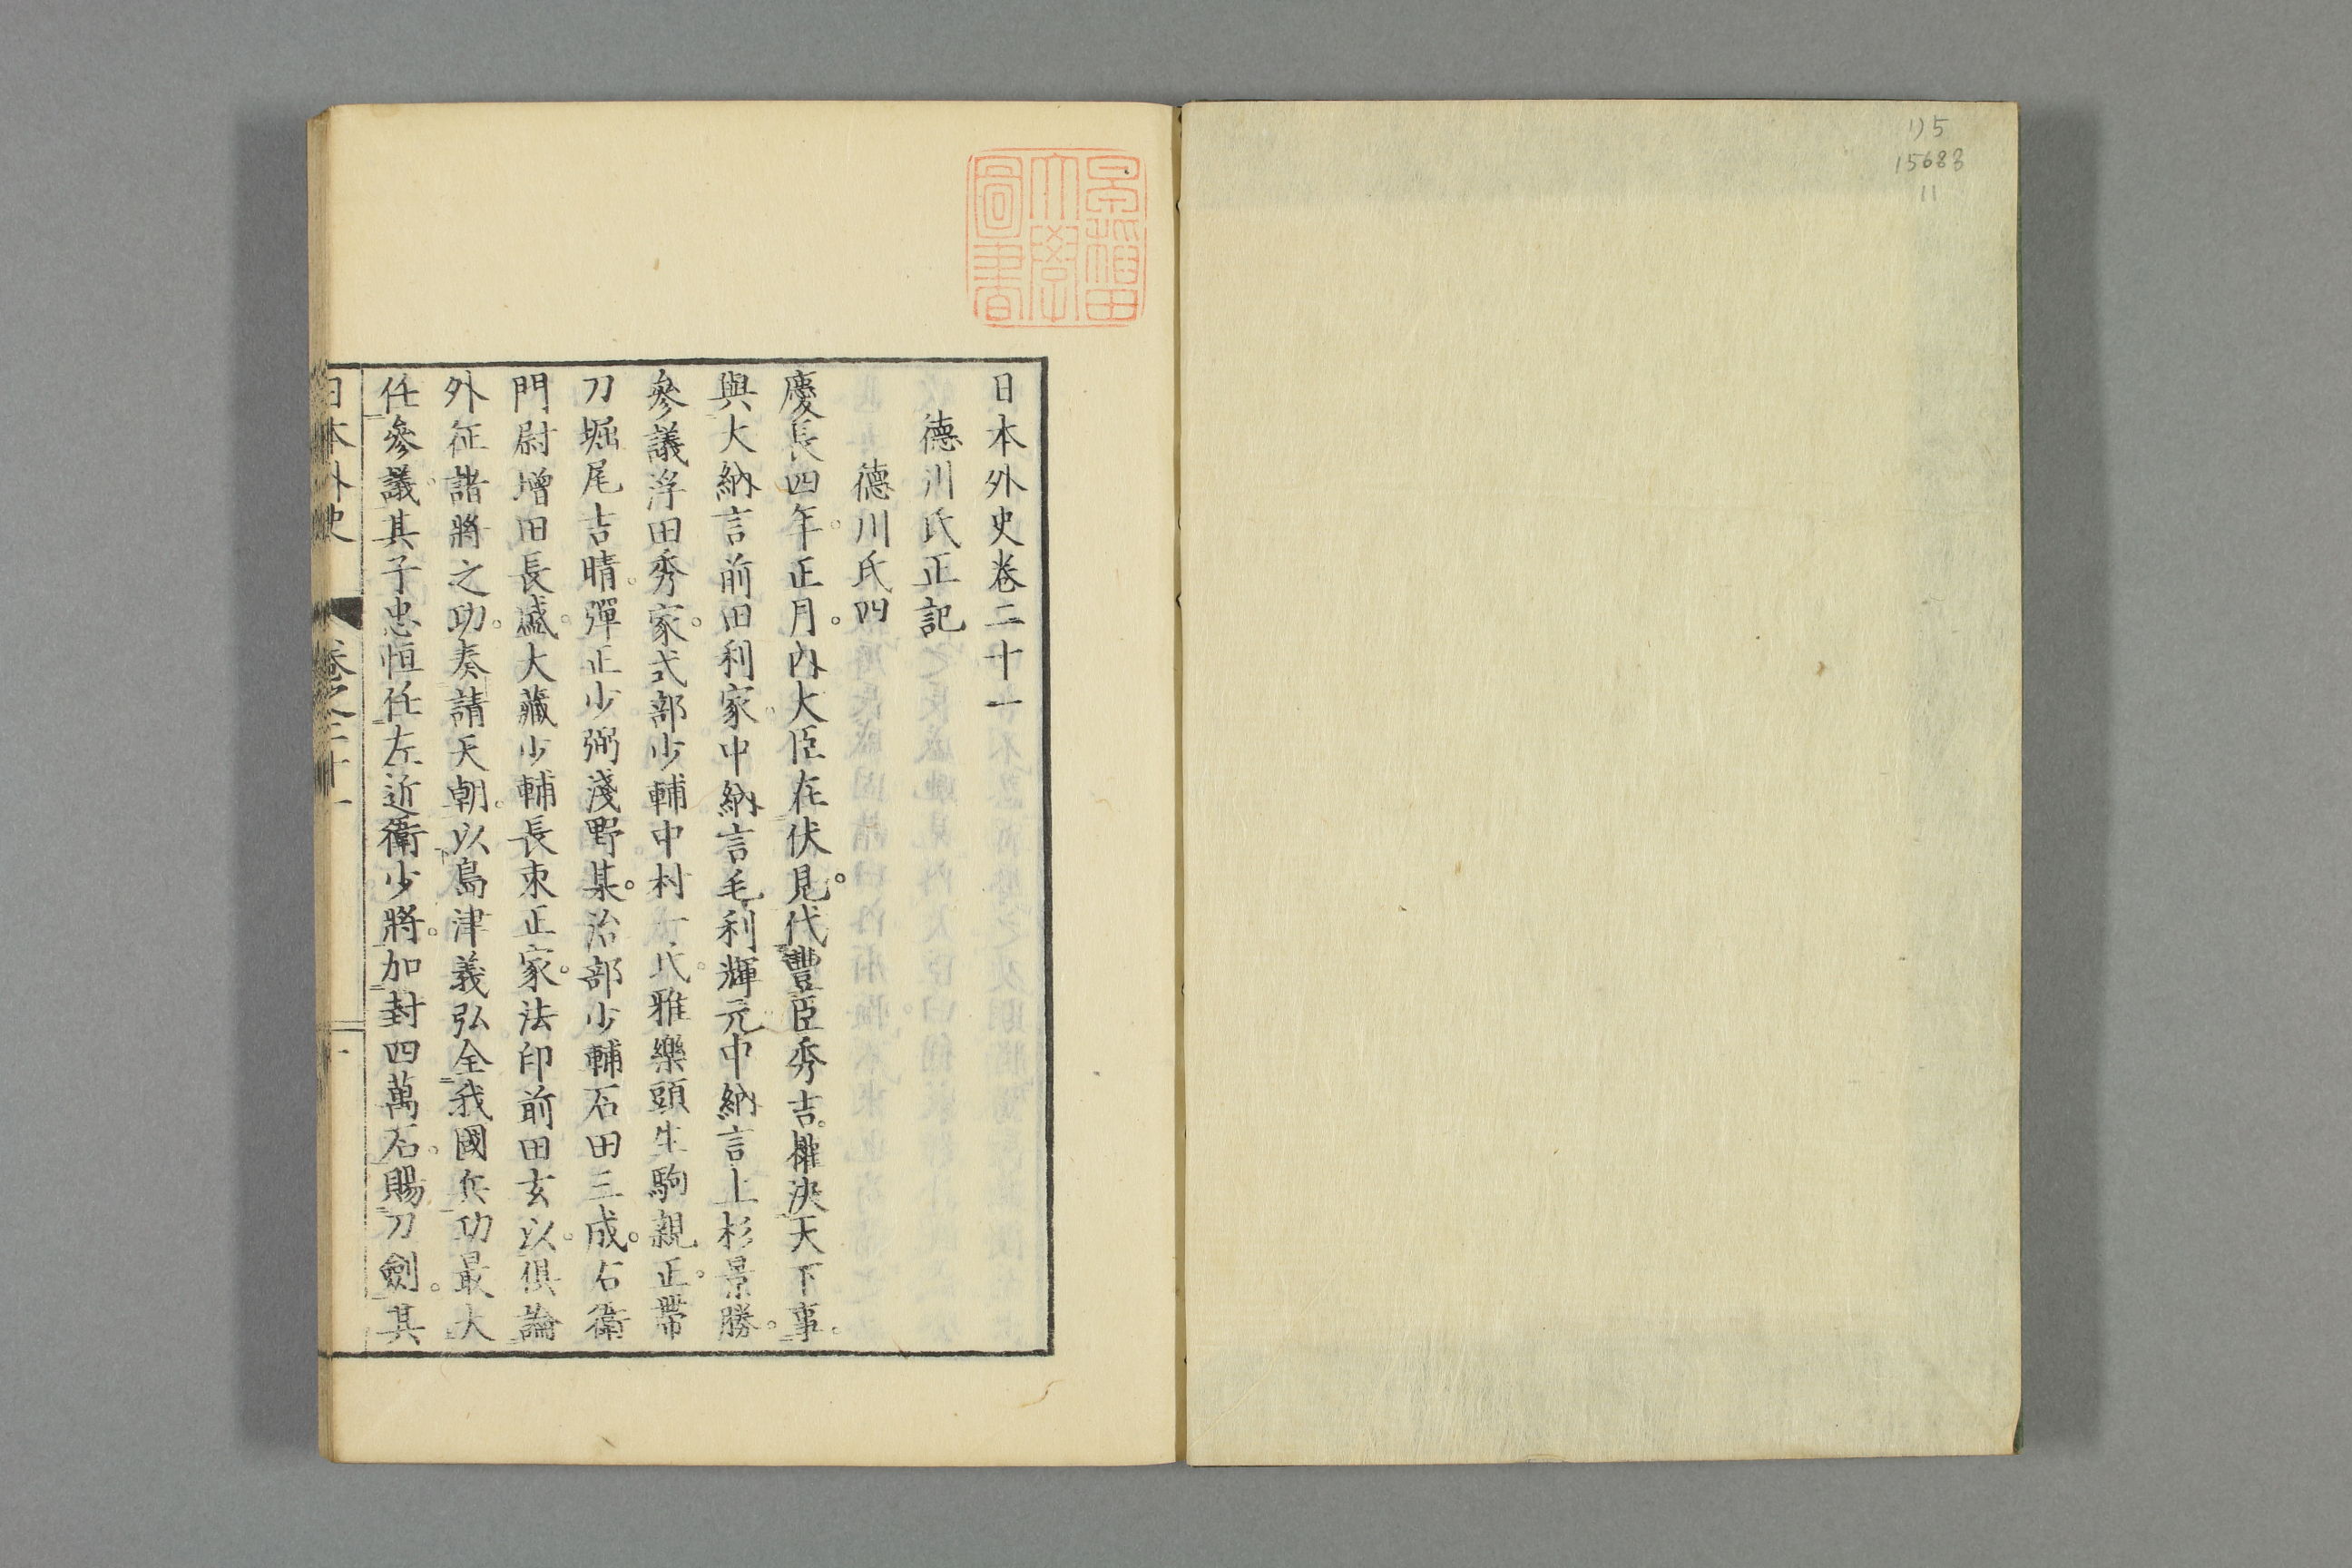 リ5
15683
11
早稲田
大學
圖書
日本外史卷二十一
德川氏正記
德川氏四
慶長四年。正月。內大臣在伏見。代豐臣秀吉。攉決天下事。
與大納言前田利家。中納言毛利輝元中納言上杉景勝。
參議浮田秀家。式部少輔中村一氏。雅樂頭生駒親正。帶
刀堀尾吉晴。彈正少弼淺野某。治部少輔石田三成。右衛
門尉增田長盛。大藏少輔長束正家。法印前田玄以。俱論
外征諸將之功。奏請天朝。以島津義弘全我國兵功最大
任參議。其子忠恒任左近衛少將。加封四萬石。賜刀劍。其
日本外史 卷之二十一 一